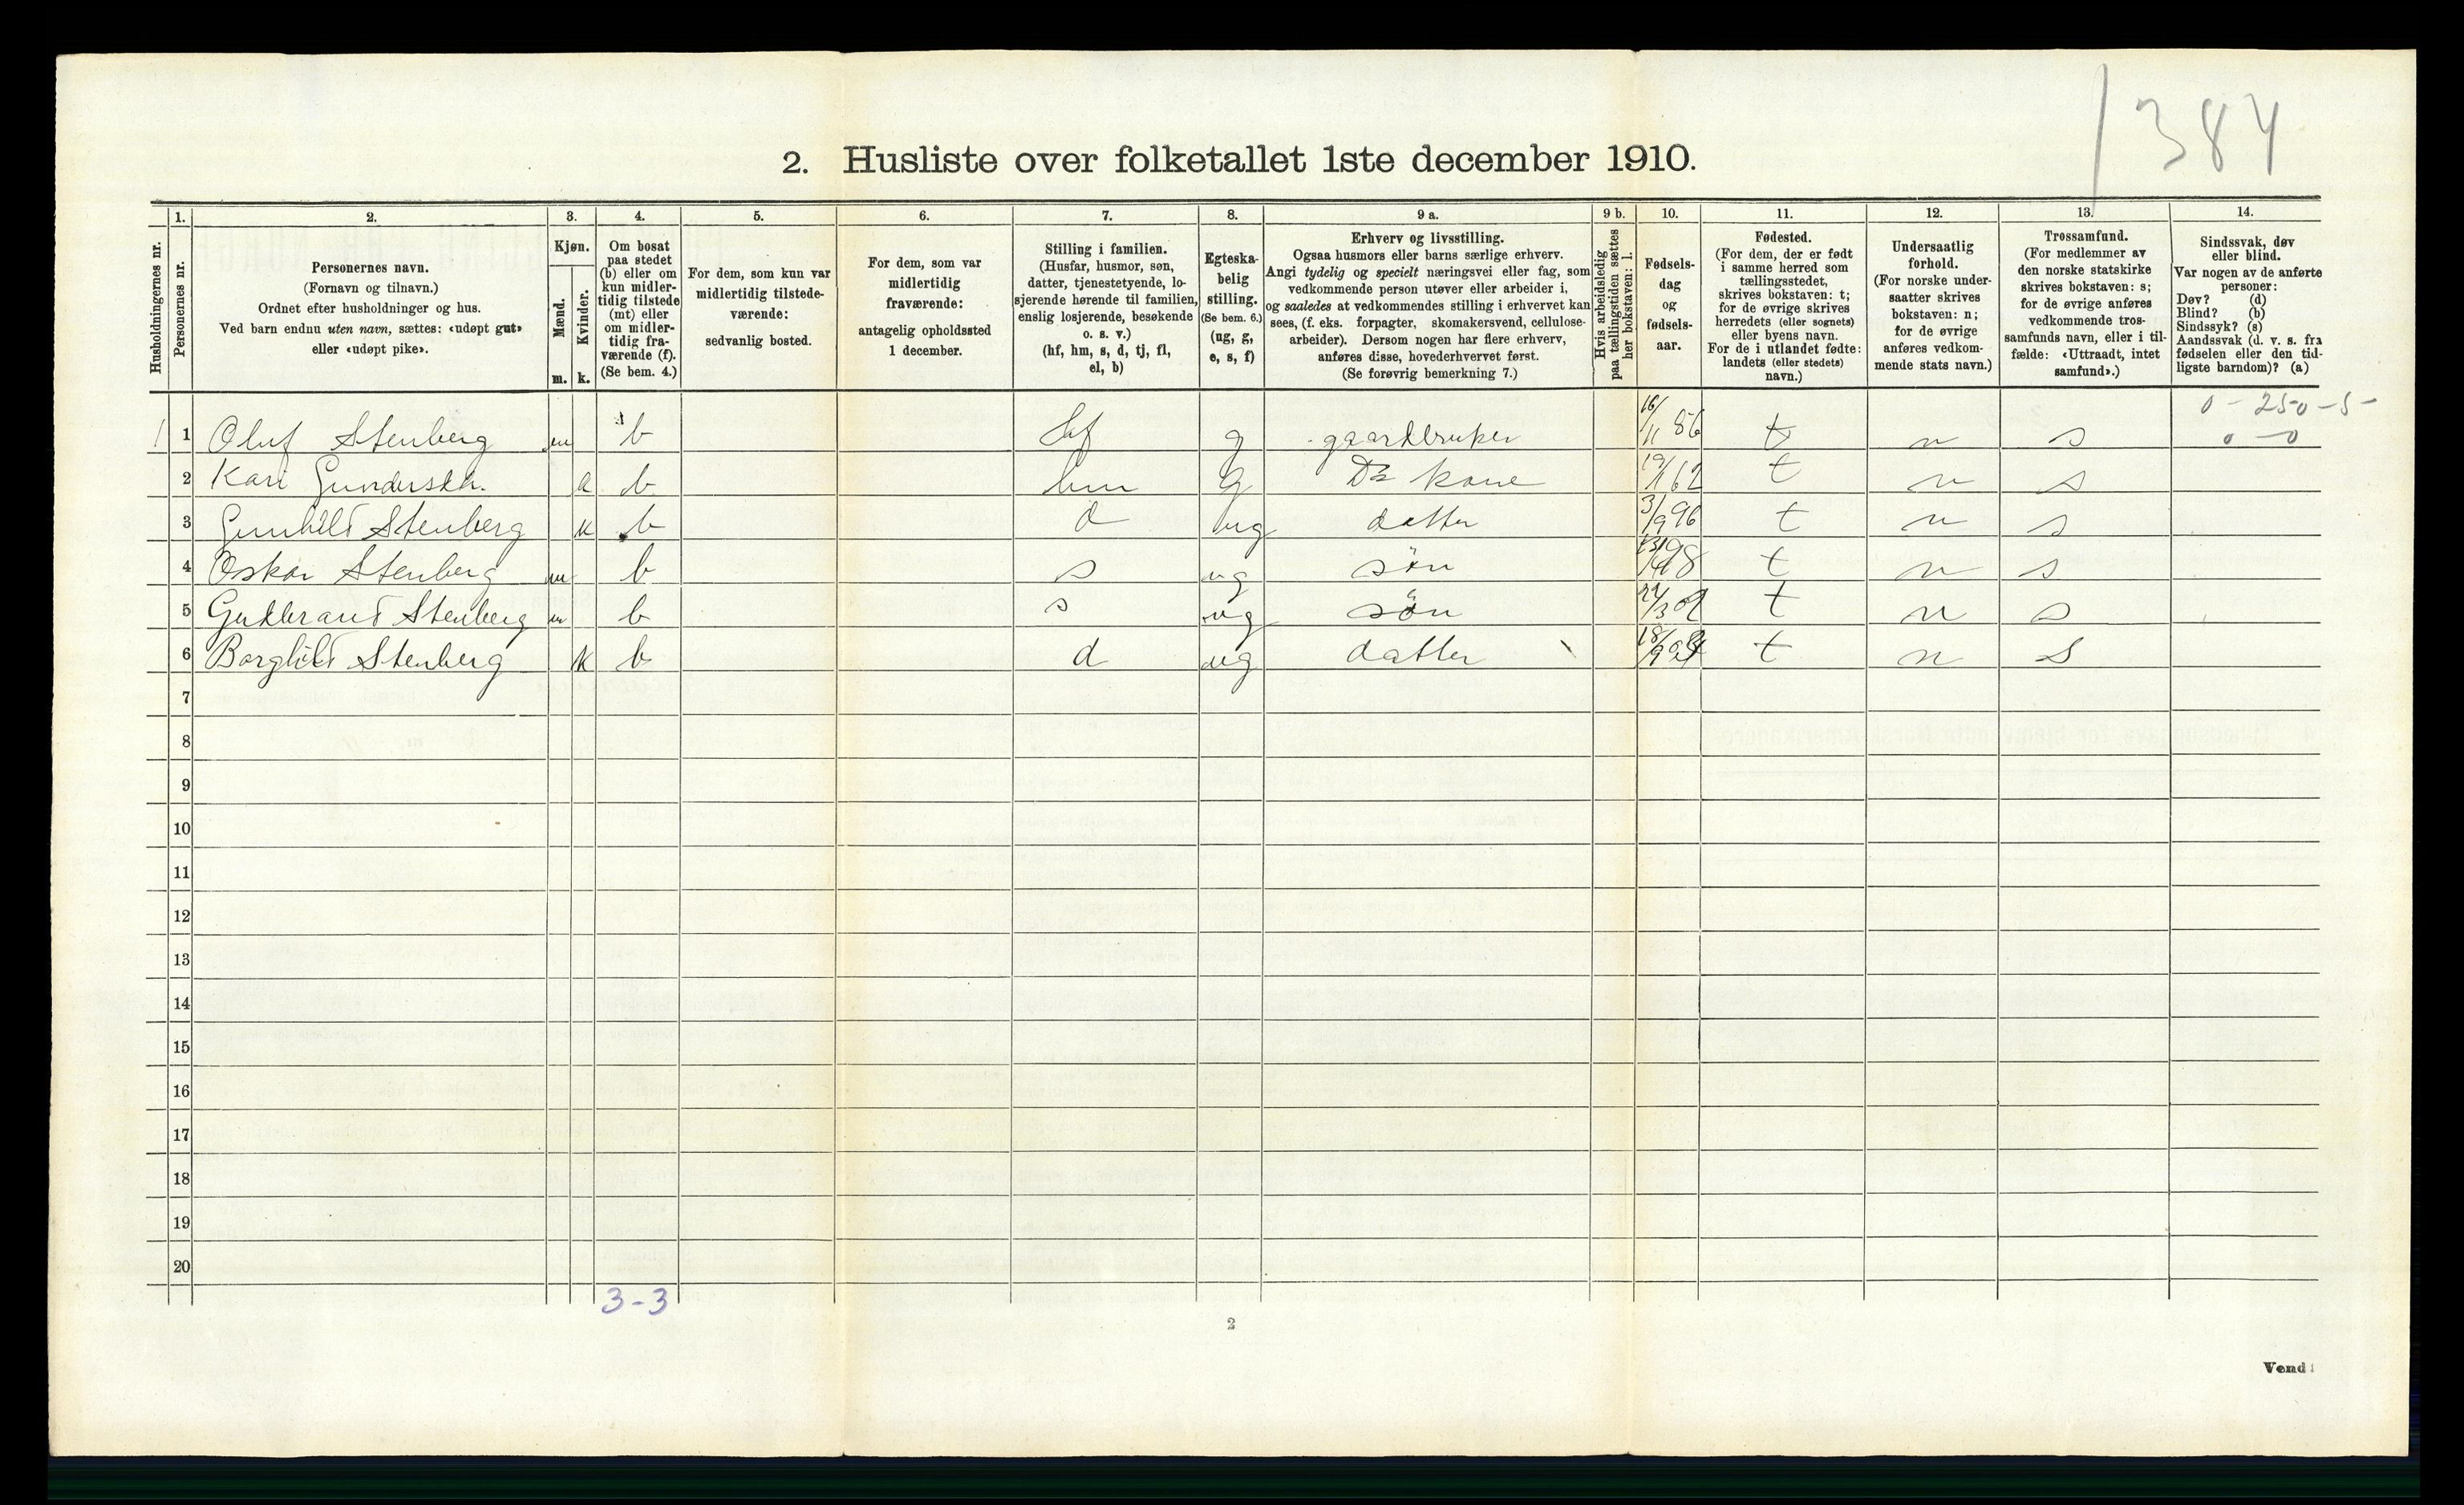 1384
2. Husliste over folketallet 1ste december 1910.
Husholdningernes nr.
1.
Personernes nr.
2.
Personernes navn.
(Fornavn og tilnavn.)
Ordnet efter husholdninger og hus.
Ved barn endnu uten navn, sættes: «udøpt gut»
eller «udøpt pike».
3.
Kjøn.
Mænd.
Kvinder.
m. k.
4.
Om bosat
paa stedet
(b) eller om
kun midler-
tidig tilstede
(mt) eller
om midler-
tidig fra-
værende (f).
(Se bem. 4.)
5.
For dem, som kun var
midlertidig tilstede-
værende:
sedvanlig bosted.
6.
For dem, som var
midlertidig
fraværende:
antagelig opholdssted
1 december.
7.
Stilling i familien.
(Husfar, husmor, søn,
datter, tjenestetyende, lo-
sjerende hørende til familien,
enslig losjerende, besøkende
o. s. v.)
(hf, hm, s, d, tj, fl,
el, b)
8.
Egteska-
belig
stilling.
(Se bem. 6.)
(ug, g,
e, s, f)
9 a.
Erhverv og livsstilling.
Ogsaa husmors eller barns særlige erhverv.
Angi tydelig og specielt næringsvei eller fag, som
vedkommende person utøver eller arbeider i,
og saaledes at vedkommendes stilling i erhvervet kan
sees, (f. eks. forpagter, skomakersvend, cellulose-
arbeider). Dersom nogen har flere erhverv,
anføres disse, hovederhvervet først.
(Se forøvrig bemerkning 7.)
9 b.
Hvis arbeidsledig
paa tællingstiden sættes
her bokstaven: l.
10.
Fødsels-
dag
og
fødsels-
aar.
11.
Fødested.
(For dem, der er født
i samme herred som
tællingsstedet,
skrives bokstaven: t;
for de øvrige skrives
herredets (eller sognets)
eller byens navn.
For de i utlandet fødte:
landets (eller stedets)
navn.)
12.
Undersaatlig
forhold.
(For norske under-
saatter skrives
bokstaven: n;
for de øvrige
anføres vedkom-
mende stats navn.)
13.
Trossamfund.
(For medlemmer av
den norske statskirke
skrives bokstaven: s;
for de øvrige anføres
vedkommende tros-
samfunds navn, eller i til-
fælde: «Uttraadt, intet
samfund».)
14.
Sindssvak, døv
eller blind.
Var nogen av de anførte
personer:
Døv? (d)
Blind? (b)
Sindssyk? (s)
Aandssvak (d. v. s. fra
fødselen eller den tid-
ligste barndom)? (a)
0 - 250 - 5 -
0 - 0
1 1 Oluf Stenberg m b hf g gaardbruker 16/11 56 t n s
2 Kari Gundersdtr. b hm g Ds kone 19/1 62 t n s
3 Gunhild Stenberg k b d ug datter 3/9 96 t n s
4 Oskar Stenberg m b s ug søn t n s
5 Gudbrand Stenberg m b s ug søn t n s
6 Borghild Stenberg k b d ug datter t n s
7
8
9
10
11
12
13
14
15
16
17
18
19
20
3-3
2
Vend!